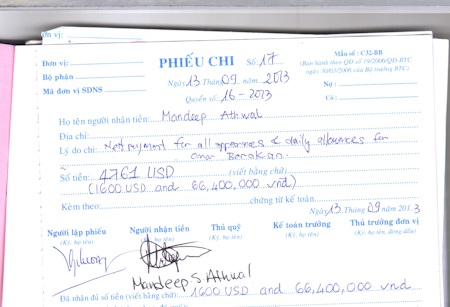 Đơn vị:
Đơn vị:
Bộ phận
Mã đơn vị SDNS
PHIẾU CHI Số: 17
Ngày 13 Tháng 09 năm 2013
Quyển số: 16-2013
Mẫu số: C32-BB
(Ban hành theo QĐ số 19/2006/QĐ-BTC
ngày 30/03/2006 của Bộ trưởng BTC)
Nợ:
Có:
Họ tên người nhận tiền: Mandeep Athwal
Địa chỉ:
Lý do chi: Net payment for all & daily allowances for
Omar
Số tiền: 4761 USD (viết bằng chữ)
(1600 USD and 66,400,000 vnd)
Kèm theo: chứng từ kế toán
Ngày 13 Tháng 09 năm 2013
Người lập phiếu Người nhận tiền Thủ quỹ Kế toán trưởng Thủ trưởng đơn vị
(Ký, họ tên) (Ký, họ tên) (Ký, họ tên) (Ký, họ tên) (Ký, họ tên, đóng dấu)
Mandeep S. Athwal
Đã nhận đủ số tiền (viết bằng chữ) 1600 USD and 66,400,000 vnd